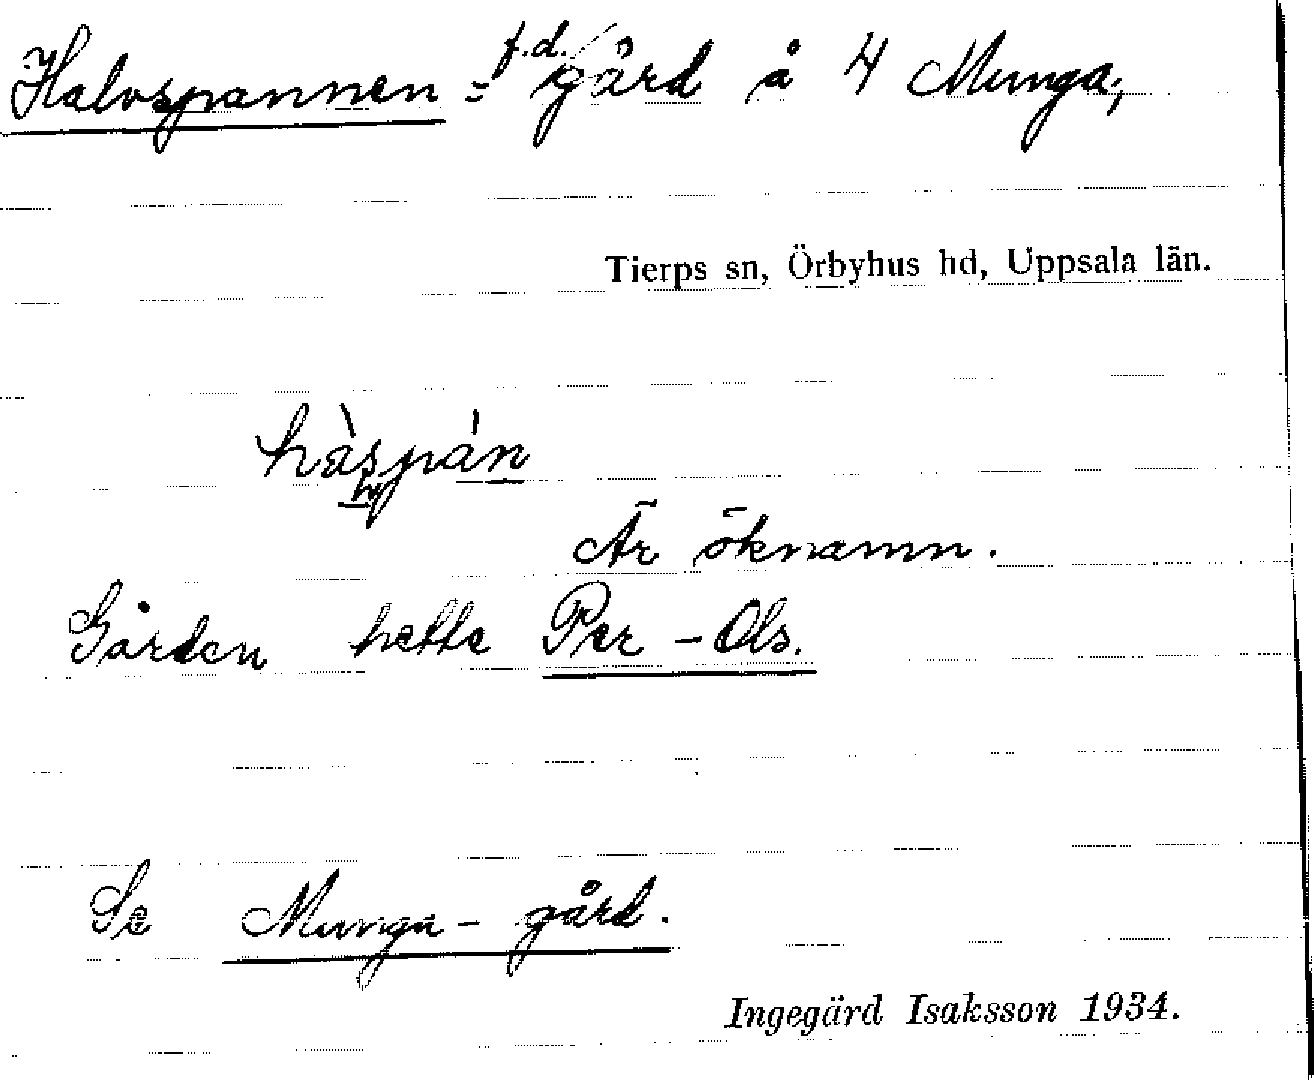 Halvspannen = f.d. gård å 4 Munga;
Tierps sn, Örbyhus hd, Uppsala län.
hàspán
Är öknamn.
Gården hette Per-Ols.
Se Munga-gård.
Ingegärd Isaksson 1934.